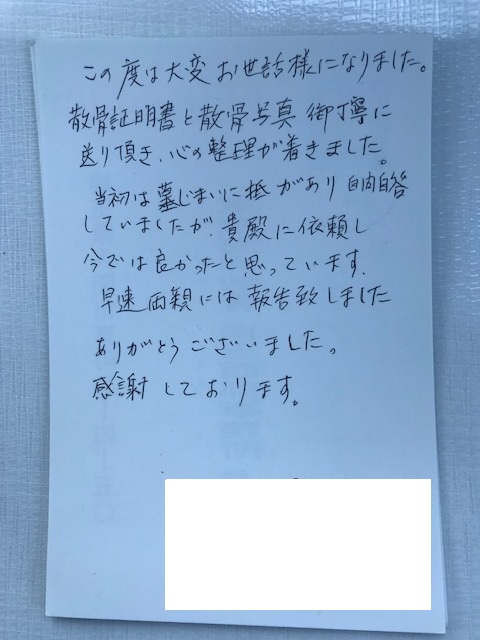 この度は大変お世話様になりました。
散骨証明書と散骨写真御丁寧に
送り頂き、心の整理が着きました。
当初は墓じまいに抵があり自問自答
していましたが、貴殿に依頼し
今では良かったと思っています。
早速両親には報告致しました
ありがとうございました。
感謝しております。